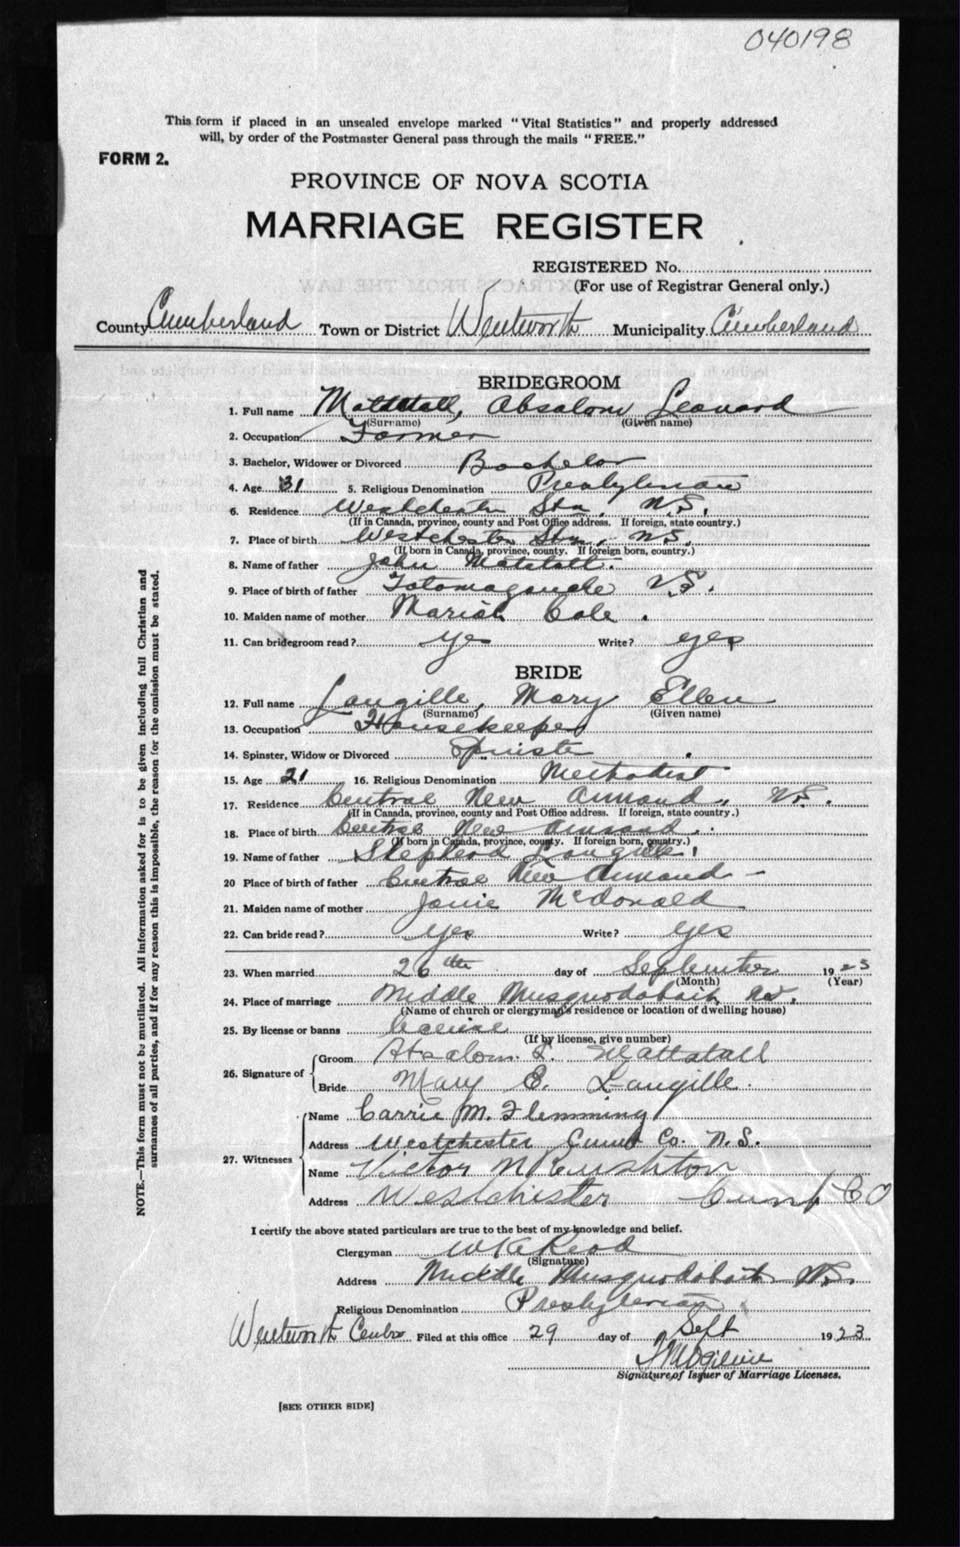 040198
This form if placed in an unsealed envelope marked "Vital Statistics" and properly addressed
will, by order of the Postmaster General pass through the mails "FREE."
FORM 2.
PROVINCE OF NOVA SCOTIA
MARRIAGE REGISTER
REGISTERED No.
(For use of Registrar General only.)
County Cumberland Town or District Wentworth Municipality Cumberland
BRIDEGROOM
1. Full name Mattatall, Absalom Leonard
(Surname) (Given name)
2. Occupation Farmer
3. Bachelor, Widower or Divorced Bachelor
4. Age 31 5. Religious Denomination Presbyterian
6. Residence Westchester Stn, N.S.
(If in Canada, province, county and Post Office address. If foreign, state country.)
7. Place of birth Westchester Stn, N.S.
(If born in Canada, province, county. If foreign born, country.)
8. Name of father John Matstatt.
9. Place of birth of father Tatamagouche N.S.
10. Maiden name of mother Mariah Cole.
11. Can bridegroom read? yes Write? yes
BRIDE
12. Full name Langille, Mary Ellen
(Surname) (Given name)
13. Occupation Housekeeper
14. Spinster, Widow or Divorced Spinster
15. Age 21 16. Religious Denomination Methodist
17. Residence Central New Annand, N.S.
(If in Canada, province, county and Post Office address. If foreign, state country.)
18. Place of birth Central New Annand.
(If born in Canada, province, county. If foreign born, country.)
19. Name of father Shepherd Langille.
20 Place of birth of father Central New Annand -
21. Maiden name of mother Janie McDonald
22. Can bride read? yes Write? yes
23. When married 26th day of September 1923
(Month) (Year)
24. Place of marriage Middle Musquodoboit N.S.
(Name of church or clergyman's residence or location of dwelling house)
25. By license or banns license
(If by license, give number)
26. Signature of
Groom Absalom L. Mattatall
Bride Mary E. Langille.
27. Witnesses
Name Carrie M. Flemming
Address Westchester Cumb Co. N.S.
Name Victor N Rushton
Address Westchister Cumb CO
I certify the above stated particulars are true to the best of my knowledge and belief.
Clergyman
(Signature)
Address Middle Musquodoboit N.S.
Religious Denomination Presbyterian
Wentworth Centre Filed at this office 29 day of Sept 1923
Signature of Issuer of Marriage Licenses.
[SEE OTHER SIDE]
NOTE.—This form must not be mutilated. All information asked for is to be given including full Christian and
surnames of all parties, and if for any reason this is impossible, the reason for the omission must be stated.